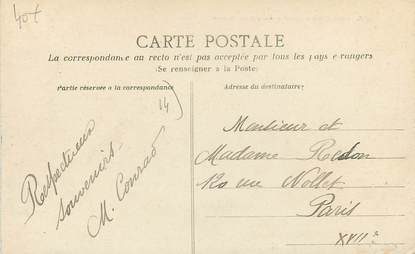 40f
CARTE POSTALE
La correspondance au recto n'est pas acceptée par tous les pays étrangers
(Se renseigner à la Poste)
Partie réservée à la correspondance
Adresse du destinataire
14)
Respectueux
souvenirs.
M. Conrad
Monsieur et
Madame Redon
rue Nollet
Paris
XVII è